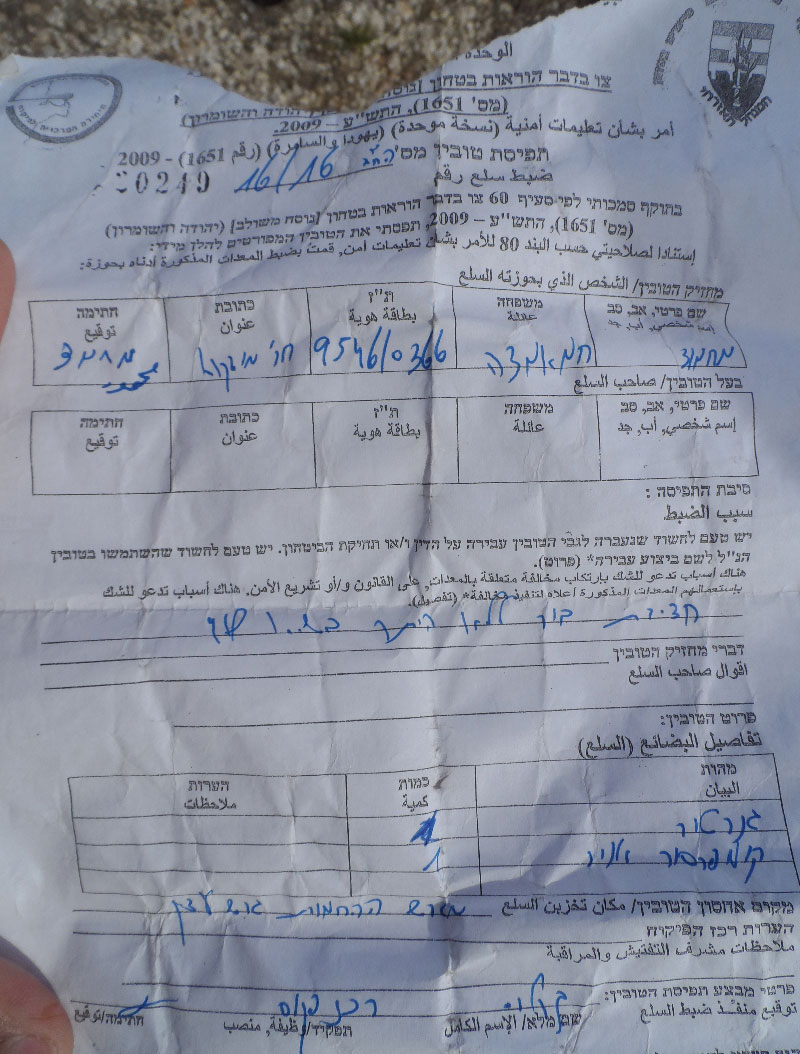 الوحدة
צו בדבר הוראות בטחון [נוסח
(מס' 1651), התש"ע – 2009. יהודה והשומרון)
أمر بشأن تعليمات أمنية (نسخة موحدة) (يهودا والسامرة) (رقم 1651) - 2009
תפיסת טובין מס' 16/16
ضبط سلع رقم 0249
בתוקף סמכותי לפי סעיף 60 צו בדבר הוראות בטחון [נוסח משולב] (יהודה והשומרון)
(מס' 1651), התש"ע – 2009, תפסתי את הטובין המפורטים להלן מידי:
إستنادا لصلاحيتي حسب البند 80 للأمر بشأن تعليمات أمن, قمت بضبط المعدات المذكورة أدناه بحوزة:
מחזיק הטובין/ الشخص الذي بحوزته السلع
שם פרטי, אב, סב משפחה ת"ז כתובת חתימה
إسم شخصي, أب, جد عائلة بطاقة هوية عنوان توقيع
מחמוד חמאמדה 9546/0366 מחמד
בעל הטובין/ صاحب السلع
שם פרטי, אב, סב משפחה ת"ז כתובת חתימה
إسم شخصي, أب, جد عائلة بطاقة هوية عنوان توقيع
סיבת התפיסה :
سبب الضبط
יש טעם לחשוד שנעברה לגבי הטובין עבירה על הדין ו/או תחיקת הביטחון. יש טעם לחשוד שהשתמשו בטובין
הנ"ל לשם ביצוע עבירה* (פרוט).
هناك أسباب تدعو للشك بإرتكاب مخالفة متعلقة بالمعدات, على القانون و/أو تشريع الأمن. هناك أسباب تدعو للشك
بإستعمالهم المعدات المذكورة أعلاه لتنفيذ مخالفة* (تفصيل).
חציבת בור ללא היתר
דברי מחזיק הטובין
اقوال صاحب السلع
פרוט הטובין:
تفاصيل البضائع (السلع)
מהות כמות הערות
البيان كمية ملاحظات
גנרטור 1
קומפרסור אויר 1
מקום אחסון הטובין/ مكان تخزين السلع מגרש החרמות גוש עציון
הערות רכז הפיקוח
ملاحظات مشرف التفتيش والمراقبة
פרטי מבצע תפיסת הטובין:
توقيع منفّذ ضبط السلع
שם מלא/ الإسم الكامل תפקיד/وظيفة, منصب חתימה/توقيع